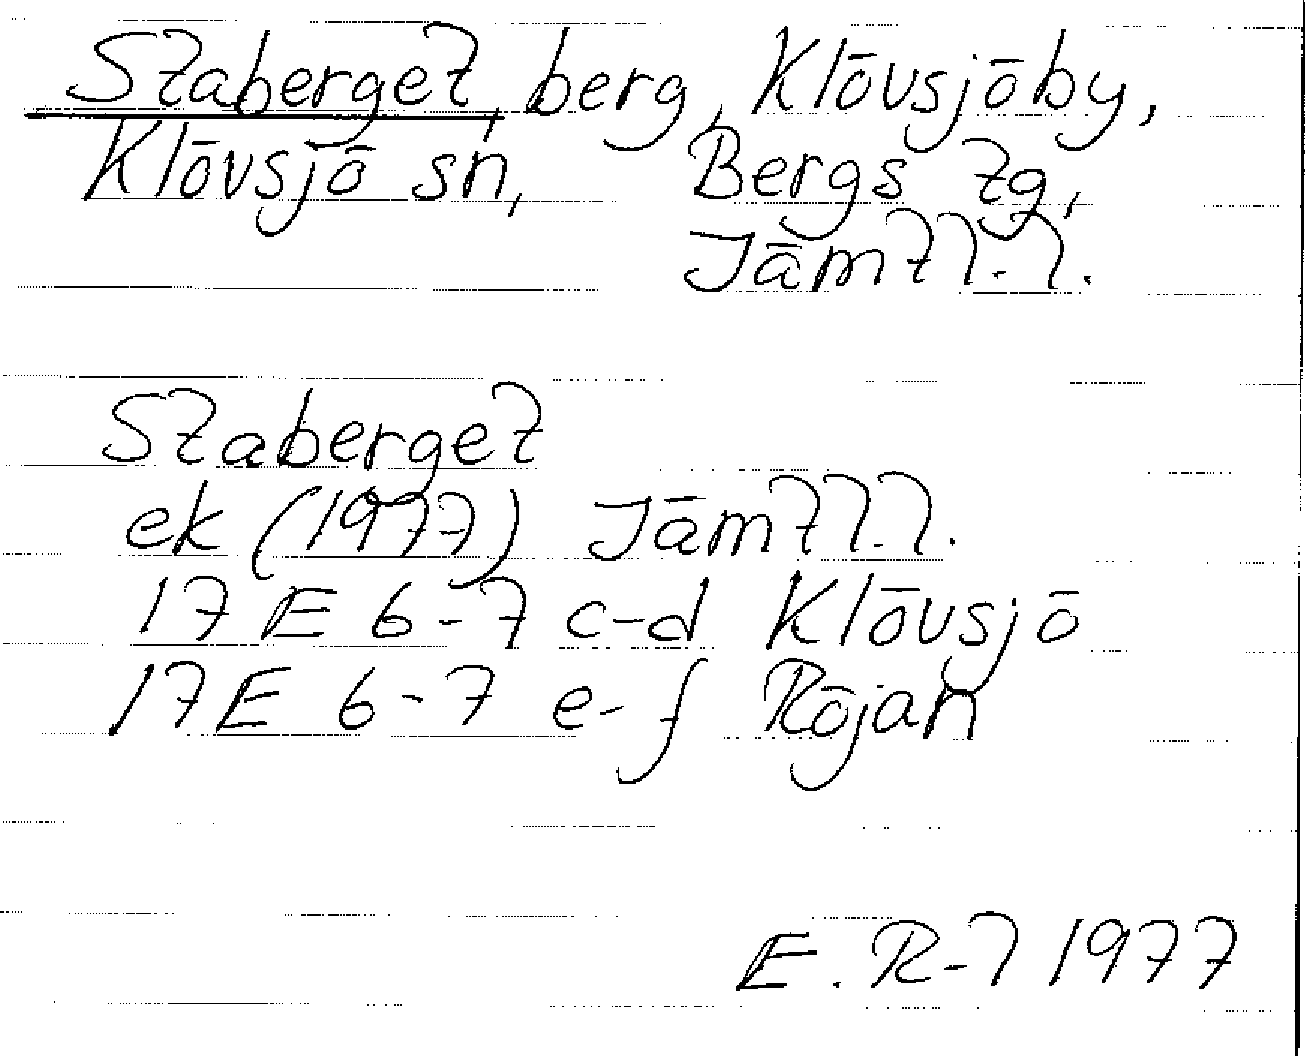 Staberget, berg, Klövsjöby,
Klövsjö sn, Bergs tg,
Jämtl.l.
Staberget
ek (1977) Jämtl.l.
17 E 6-7 c-d Klövsjö
17 E 6-7 e-f Röjan
E. R-l 1977